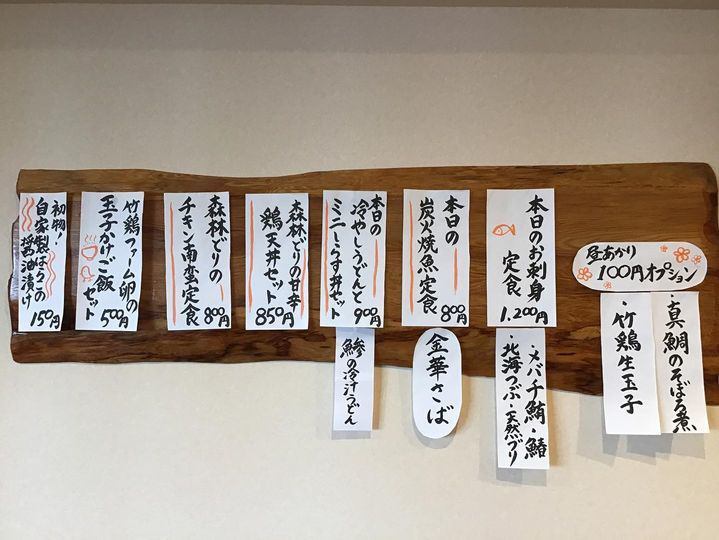 昼あかり
100円オプション
・真鯛のそぼろ煮
・竹鶏生玉子
本日のお刺身
定食
1.200円
・メバチ鮪・鰆
・北海つぶ・天然ブリ
本日の
炭火焼魚定食
800円
金華さば
本日の
冷やしうどんと
ミニしらす丼セット
900円
鯵の冷汁うどん
森林どりの甘辛
鶏天丼セット
850円
森林どりの
チキン南蛮定食
800円
竹鶏ファーム卵の
玉子かけご飯
セット
500円
初物!
自家製はらこの
醤油漬け
150円